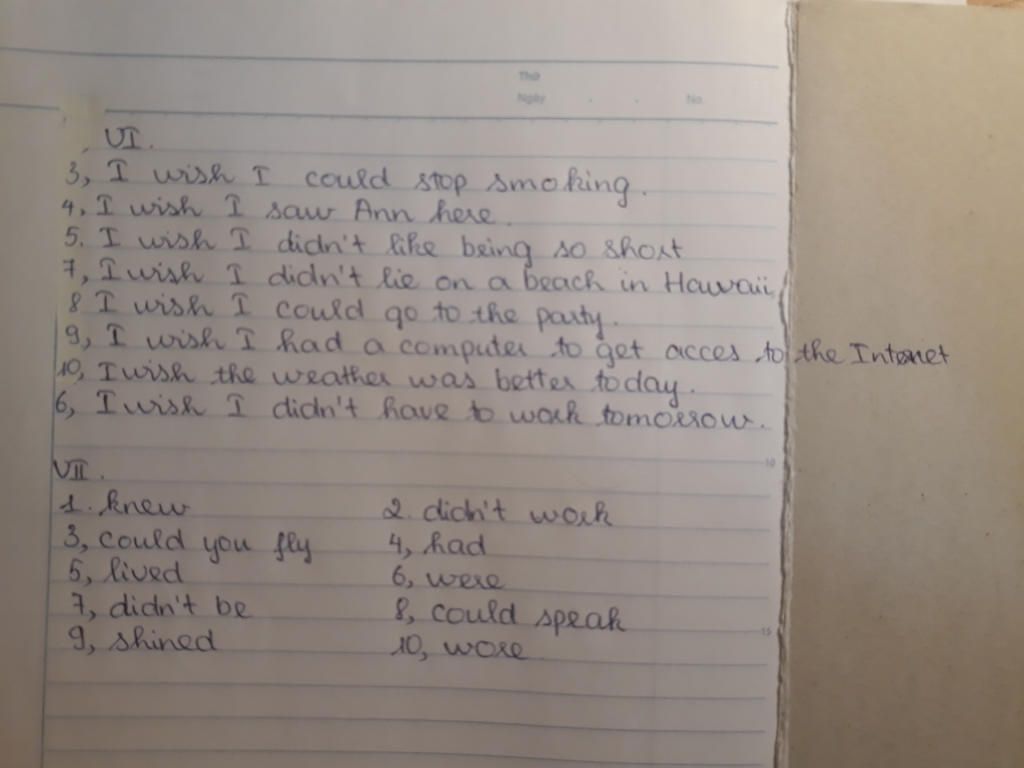 Thứ
Ngày . . No.
VI.
3, I wish I could stop smoking.
4. I wish I saw Ann here.
5. I wish I didn't like being so short
7, I wish I didn't lie on a beach in Hawaii,
8 I wish I could go to the party.
9, I wish I had a computer to get acces to the Internet
10, I wish the weather was better today.
6, I wish I didn't have to work tomorrow.
10
VII.
1. knew 2. didn't work
3, could you fly 4, had
5, lived 6, were
7, didn't be 8, could speak
15
9, shined 10, wore